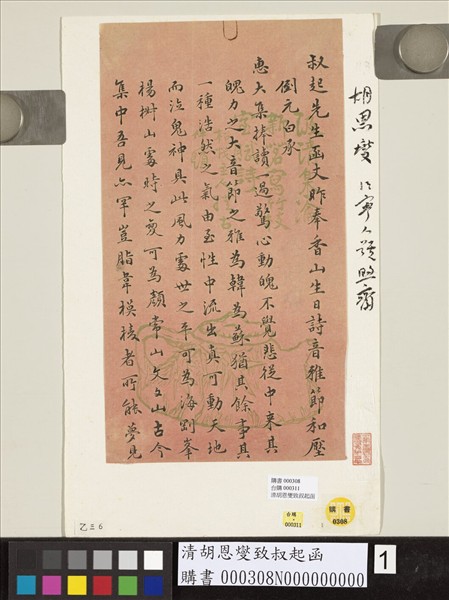 胡恩燮 江寧人號煦齋
叔起先生函丈昨奉香山生日詩音雅節和壓
倒元白承
惠大集捧讀一過驚心動魄不覺悲從中來其
魄力之大音節之雅為韓為蘇猶其餘事其
一種浩然之氣由至性中流出真可動天地
而泣鬼神具此風力處世之平可為海剛峯
楊椒山處時之變可為顏常山文文山古今
集中吾見亦罕豈脂韋模稜者所能夢見
購書 000308
台購 000311
清胡恩燮致叔起函
台購
000311
購書
0308
乙三6
清胡恩燮致叔起函
購書 000308N000000000
1